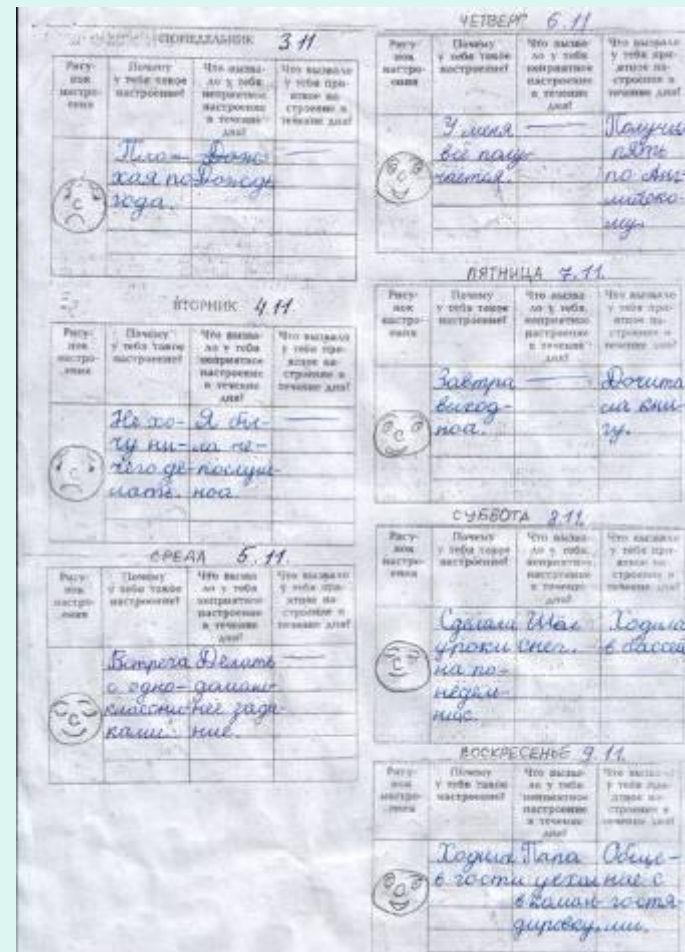 ПОНЕДЕЛЬНИК 3.11
Рису-
нок
настро-
ения
Почему
у тебя такое
настроение?
Что вызва-
ло у тебя
неприятное
настроение
в течение
дня?
Что вызвало
у тебя при-
ятное на-
строение в
течение дня?
Пло-
хая по-
года.
Дождь
—
ВТОРНИК 4.11
Рису-
нок
настро-
ения
Почему
у тебя такое
настроение?
Что вызва-
ло у тебя
неприятное
настроение
в течение
дня?
Что вызвало
у тебя при-
ятное на-
строение в
течение дня?
Не хо-
чу ни-
чего де-
лать.
Я бы-
ла не-
послуш-
ноа.
—
СРЕДА 5.11.
Рису-
нок
настро-
ения
Почему
у тебя такое
настроение?
Что вызва-
ло у тебя
неприятное
настроение
в течение
дня?
Что вызвало
у тебя при-
ятное на-
строение в
течение дня?
Встреча
с одно-
классни-
ками.
Делать
домаш-
нее зада-
ние.
—
ЧЕТВЕРГ 6.11
Рису-
нок
настро-
ения
Почему
у тебя такое
настроение?
Что вызва-
ло у тебя
неприятное
настроение
в течение
дня?
Что вызвало
у тебя при-
ятное на-
строение в
течение дня?
У меня
всё полу-
чается.
—
Получи
пять
по Анг-
лийско-
му.
ПЯТНИЦА 7.11.
Рису-
нок
настро-
ения
Почему
у тебя такое
настроение?
Что вызва-
ло у тебя
неприятное
настроение
в течение
дня?
Что вызвало
у тебя при-
ятное на-
строение в
течение дня?
Завтра
выход-
ноа.
—
Дочита
ла кни-
гу.
СУББОТА 8.11.
Рису-
нок
настро-
ения
Почему
у тебя такое
настроение?
Что вызва-
ло у тебя
неприятное
настроение
в течение
дня?
Что вызвало
у тебя при-
ятное на-
строение в
течение дня?
Сделала
уроки
на по-
недель-
ник.
Шол
снег.
Ходила
в бассей
ВОСКРЕСЕНЬЕ 9.11.
Рису-
нок
настро-
ения
Почему
у тебя такое
настроение?
Что вызва-
ло у тебя
неприятное
настроение
в течение
дня?
Что вызвало
у тебя при-
ятное на-
строение в
течение дня?
Ходила
в гости
Папа
уехал
в каман-
дировку.
Обще-
ние с
гостя-
ми.